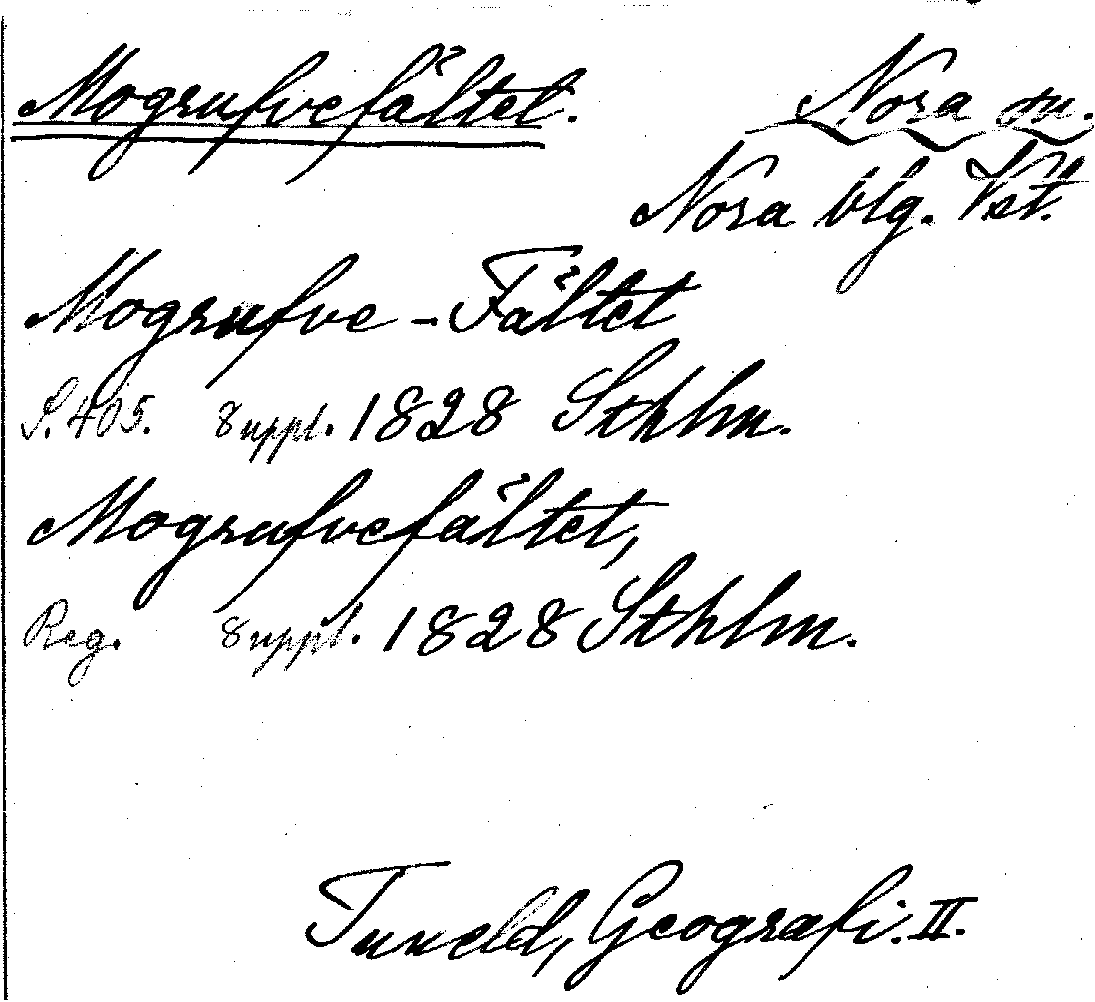 Mogrufvefältet. Nora sn.
Nora blg. Vstl.
Mogrufve-Fältet
S. 405. Suppl. 1828 Sthlm.
Mogrufvefältet,
Reg. Suppl. 1828 Sthlm.
Tuneld, Geografi. II.